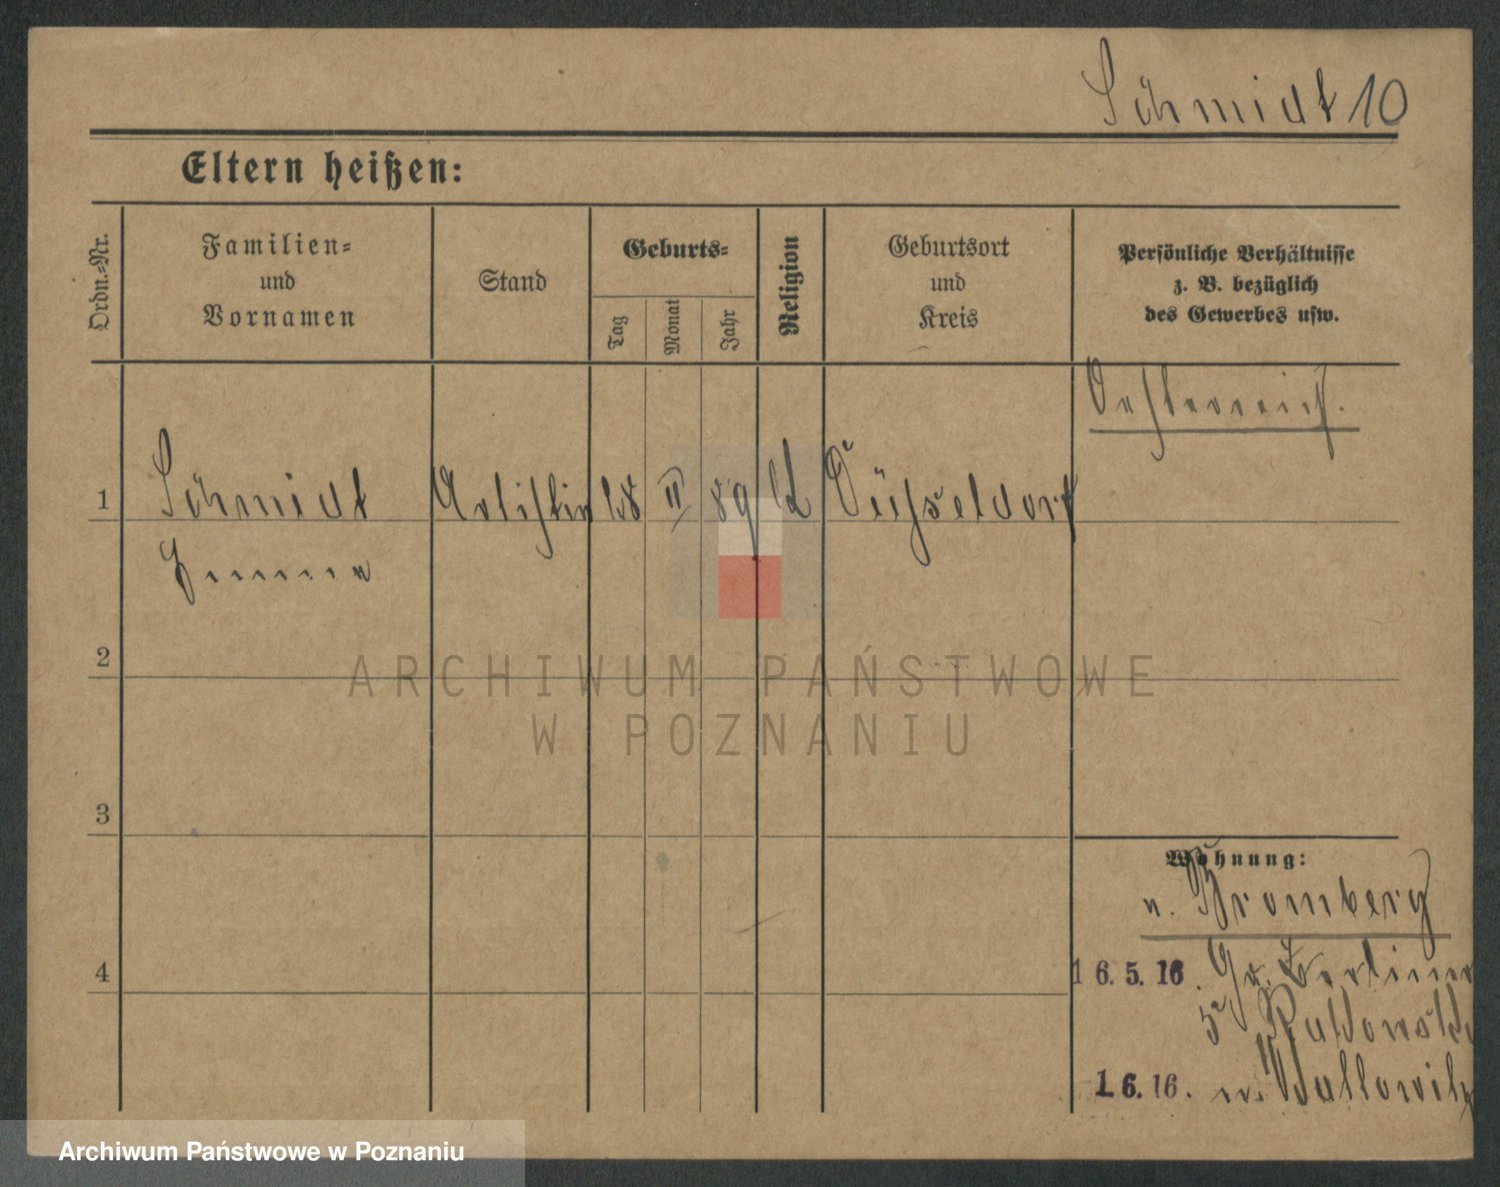 Schmidt 10
Eltern heißen:
Ordn.-Nr.
Familien-
und
Vornamen
Stand
Geburts-
Tag
Monat
Jahr
Religion
Geburtsort
und
Kreis
Persönliche Verhältnisse
z. B. bezüglich
des Gewerbes usw.
Oesterreich.
1
Schmidt Artistin II 89 Düsseldorf
Emma
2
ARCHIWUM PAŃSTWOWE
W POZNANIU
3
Wohnung:
v. Bromberg
4
16.5.16. Gr. Berliner
1.6.16. n.
Archiwum Państwowe w Poznaniu